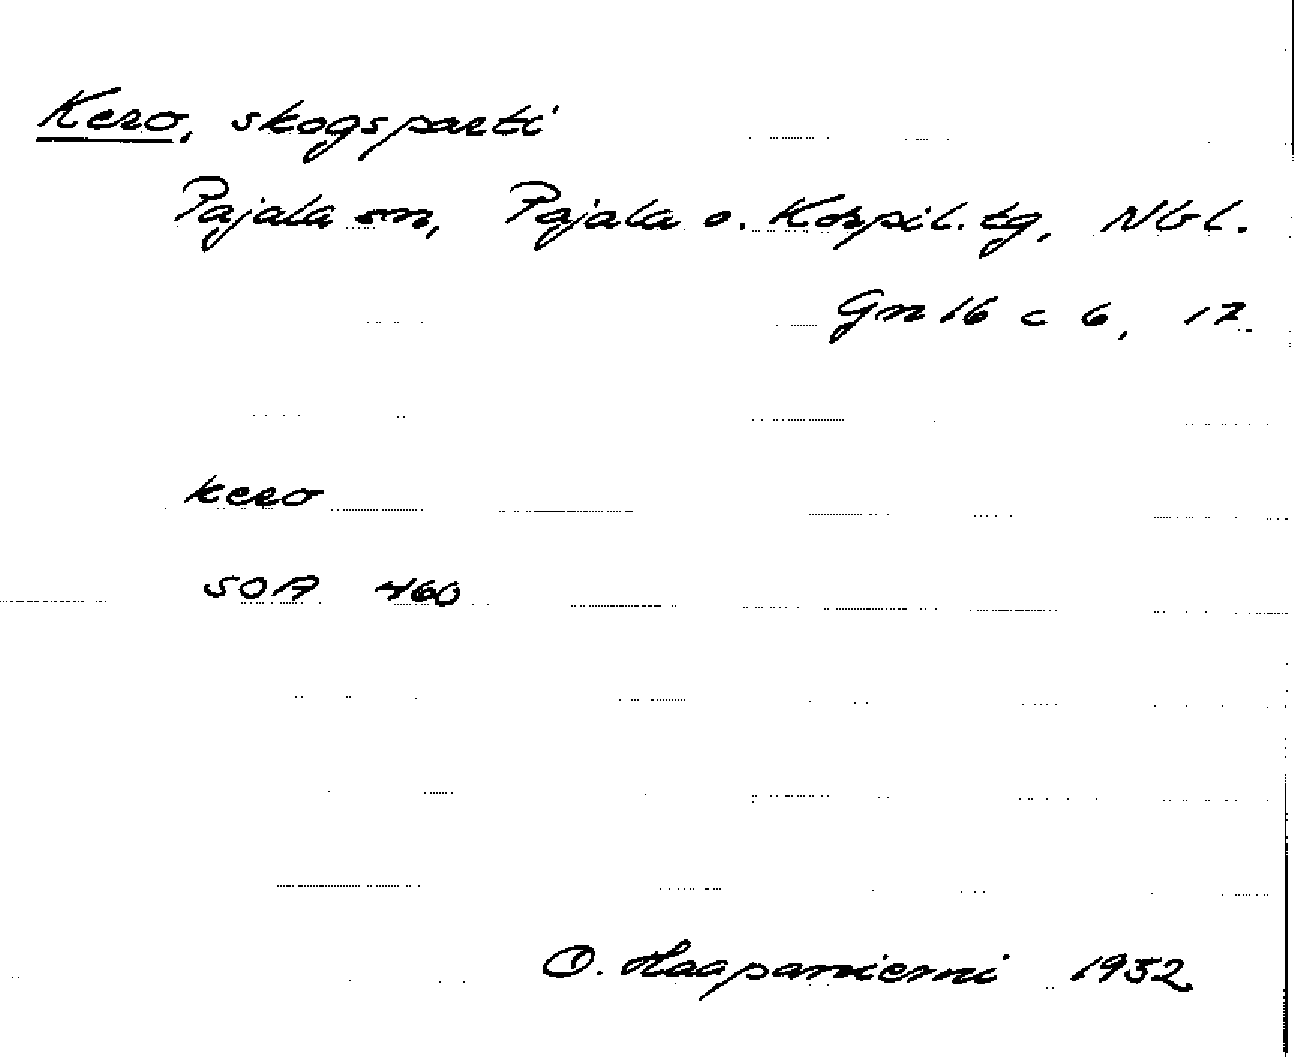 Kero, skogsparti
Pajala sn, Pajala o. Korpil. tg, Nbl.
Gn 16 c 6, 17.
kero
SOA 460
O. Haapaniemi 1932